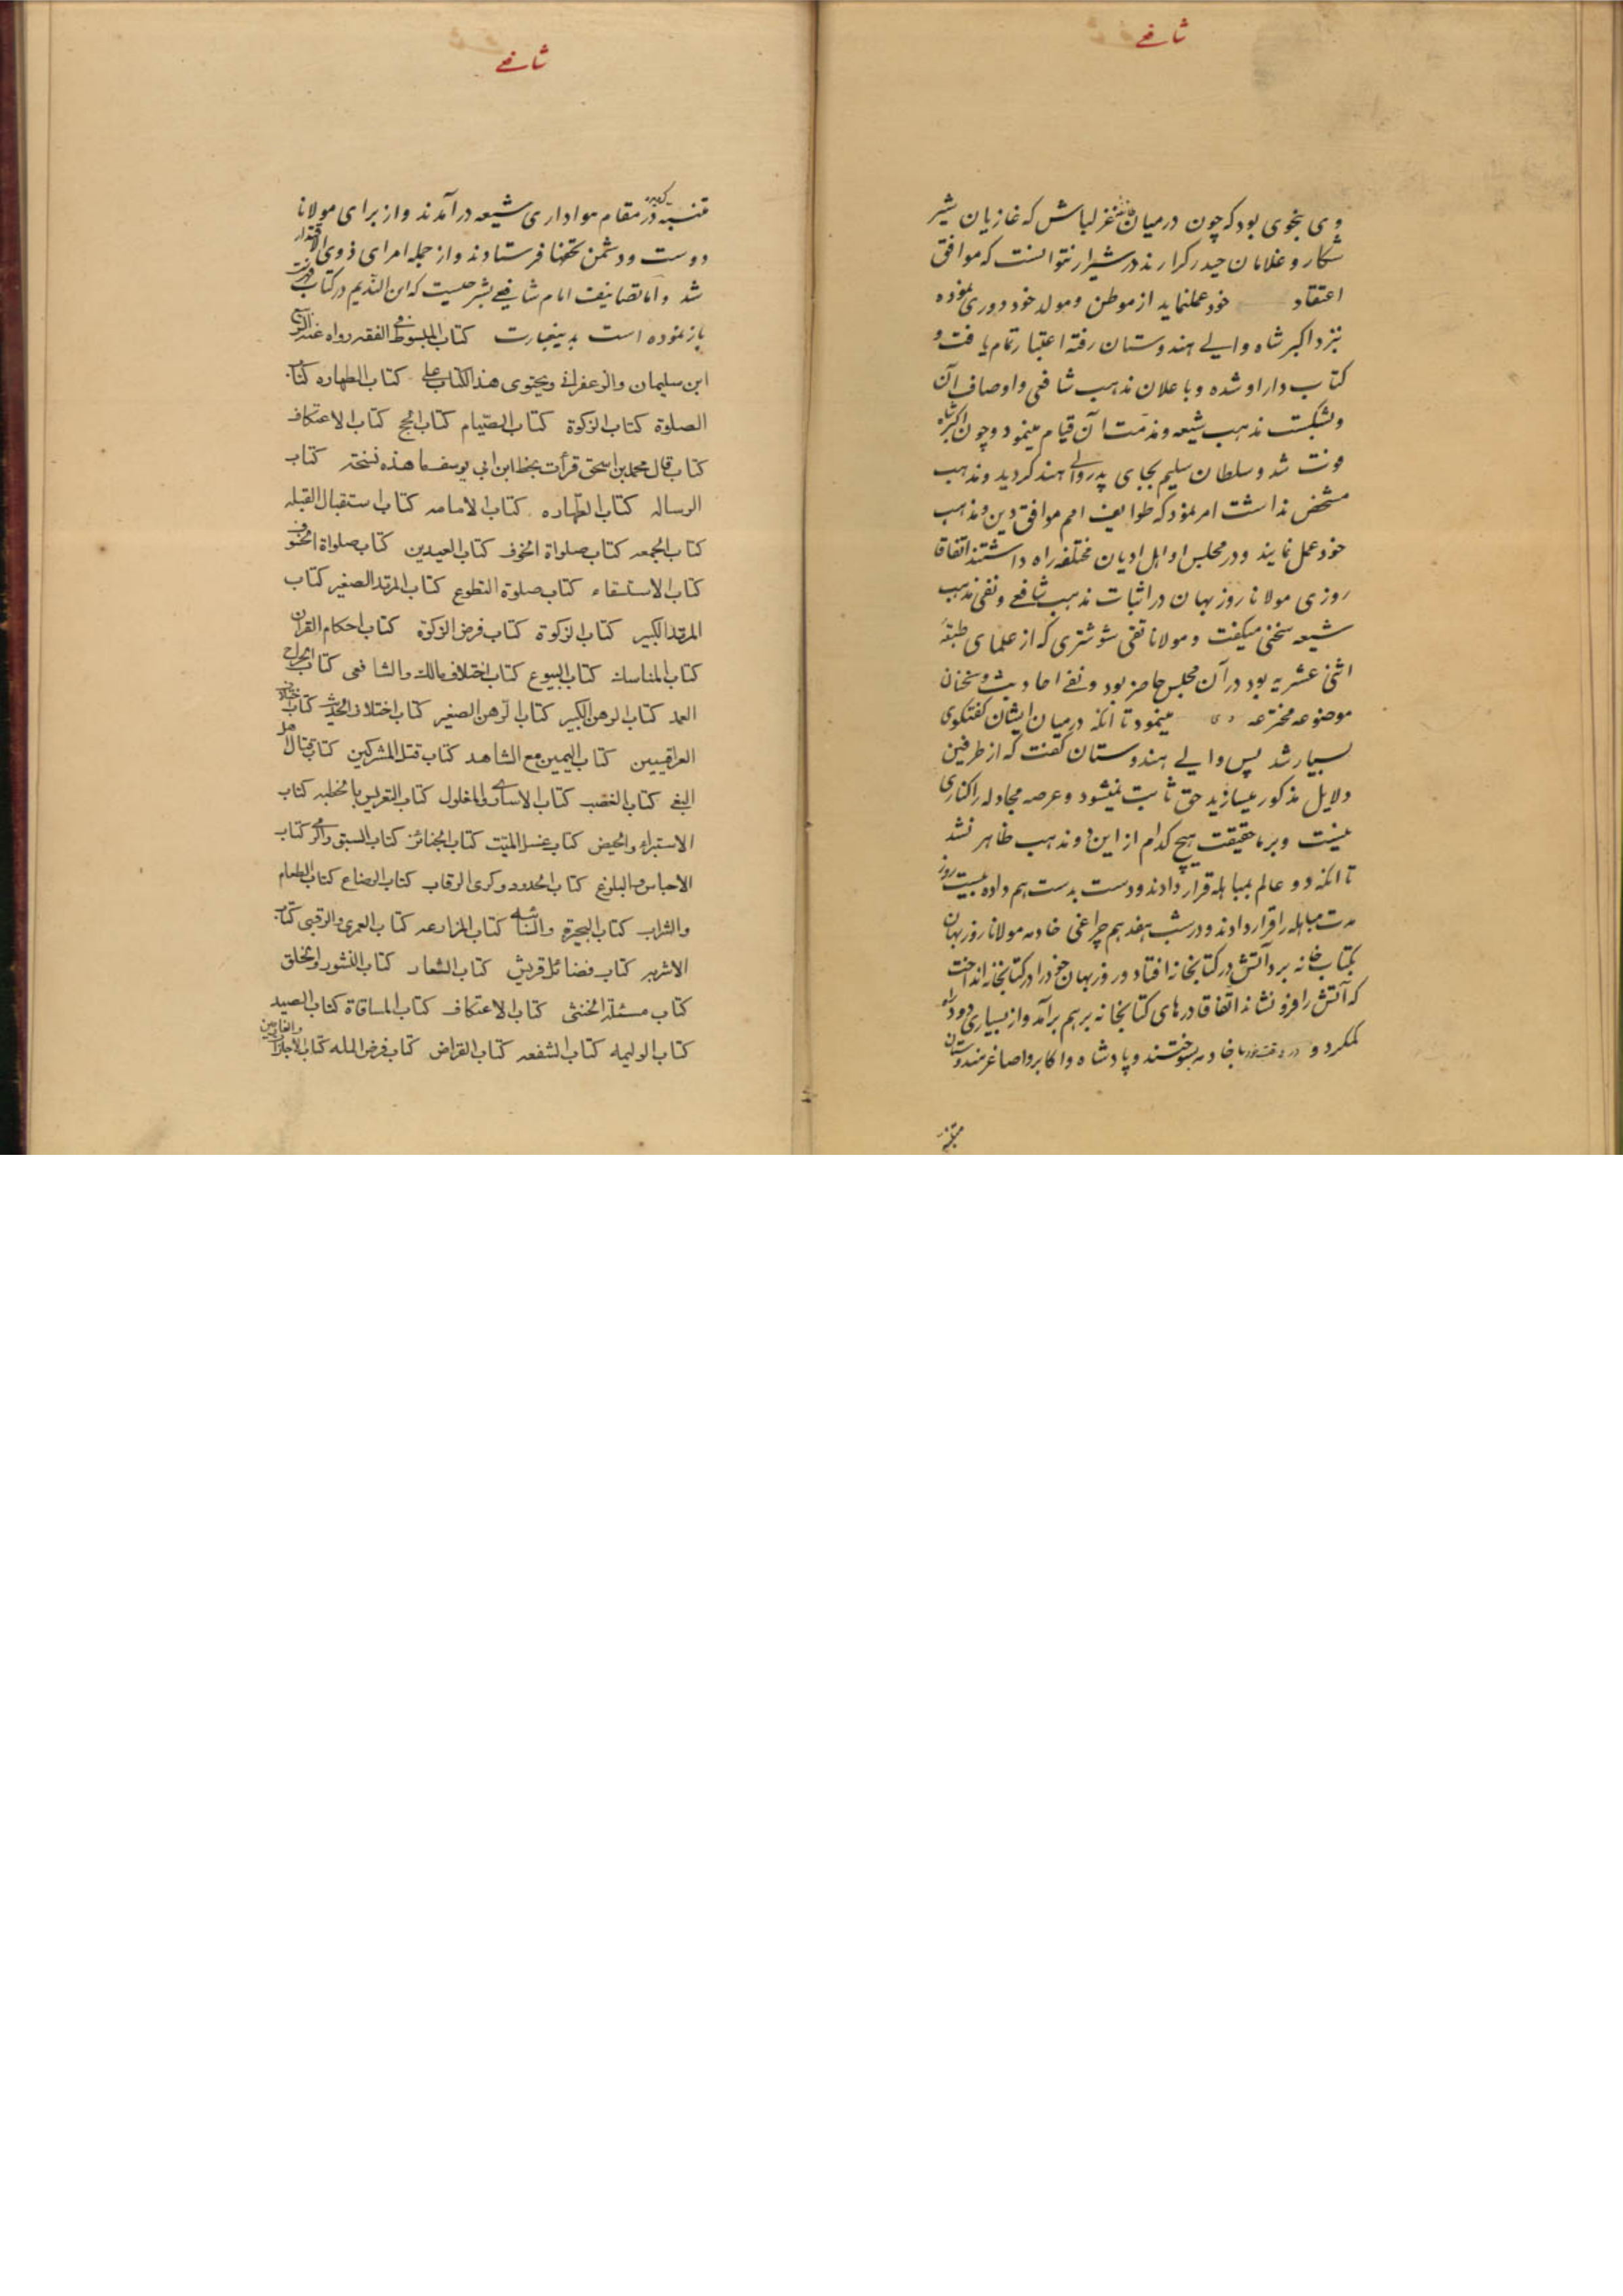 شافعے
وی بنحوی بود که چون در میان قزلباش که غازیان شیر
شکار و غلامان حیدر کرارند در شیراز نتوانست که موافق
اعتقاد خود عمل نماید از موطن و مولد خود دوری نموده
نزد اکبر شاه والے هندوستان رفته اعتبار تمام یافت و
کتاب دار او شده و باعلان مذهب شافعی و اوصاف آن
و شکست مذهب شیعه و مذمت آن قیام مینمود و چون اکبر شاه
فوت شد و سلطان سلیم بجای پدر والے هند کردید و مذهب
مشخص نداشت امر نمود که طوایف امم موافق دین و مذهب
خود عمل نمایند و در مجلس او اهل ادیان مختلفه راه داشتند اتفاقا
روزی مولانا روزبهان در اثبات مذهب شافعے و نفی مذهب
شیعه سخنی میکفت و مولانا تقی شوشتری که از علمای طبقه
اثنی عشریه بود در آن مجلس حاضر بود و نفے احادیث و سخنان
موضوعه مخترعه وی مینمود تا آنکه در میان ایشان کفتکوی
بسیار شد پس والے هندوستان کفت که از طرفین
دلایل مذکور میسازید حق ثابت نمیشود و عرصه مجادله را کناری
نیست و بر ما حقیقت هیچ کدام از این دو مذهب ظاهر نشد
تا آنکه دو عالم بمباهله قرار دادند و دست بدست هم داده بیست روز
مدت مباهله را قرار دادند و در شب هفدهم چراغی خادمه مولانا روزبهان
بکتاب خانه برد آتش در کتابخانه افتاد و روزبهان خود را در کتابخانه انداخت
که آتش را فرو نشاند اتفاقا درهای کتابخانه برهم برآمد و از بسیاری دود راه
کم کرد و با خادمه بسوختند و پادشاه و اکابر و اصاغر هندوستان
متنبه
شافعے
متنبه کردیده در مقام هواداری شیعه درآمدند و از برای مولانا
دوست و دشمن تحفها فرستادند و از جمله امرای ذوی الاقتدار
شد و اما تصانیف امام شافعے بشرحیست که ابن الندیم در کتاب فهرست
باز نموده است بدینعبارت کتاب المبسوط فی الفقه رواه عنه الربیع
ابن سلیمان والزعفرانی ویحتوی هذا الکتاب علی کتاب الطهاره کتاب
الصلوة کتاب الزکوة کتاب الصیام کتاب الحج کتاب الاعتکاف
کتاب قال محمد بن اسحق قرأت بخط ابن ابی یوسف ما هذه نسخته کتاب
الرساله کتاب الطهاره کتاب الامامه کتاب استقبال القبله
کتاب الجمعه کتاب صلواة الخوف کتاب العیدین کتاب صلواة الخسوف
کتاب الاستسقاء کتاب صلوة التطوع کتاب المرتد الصغیر کتاب
المرتد الکبیر کتاب الزکوة کتاب فرض الزکوة کتاب احکام القران
کتاب المناسک کتاب البیوع کتاب اختلاف مالک والشافعی کتاب الجراح
العمد کتاب الرهن الکبیر کتاب الرهن الصغیر کتاب اختلاف الحدیث کتاب اختلاف
العراقیین کتاب الیمین مع الشاهد کتاب قتل المشرکین کتاب قتال اهل
البغی کتاب الغصب کتاب الاساری والغلول کتاب التعریض بالخطبه کتاب
الاستبراء والحیض کتاب غسل المیت کتاب الجنائز کتاب السبق والرمی کتاب
الاحباس والبلوغ کتاب الحدود وکری الرقاب کتاب الرضاع کتاب الطعام
والشراب کتاب البحیرة والسائبه کتاب المزارعه کتاب العمری والرقبی کتاب
الاشربه کتاب فضائل قریش کتاب الشعار کتاب النشوز والخلق
کتاب مسئلة الخنثی کتاب الاعتکاف کتاب المساقاة کتاب الصید
کتاب الولیمه کتاب الشفعه کتاب القراض کتاب فرض الله کتاب الاجارات